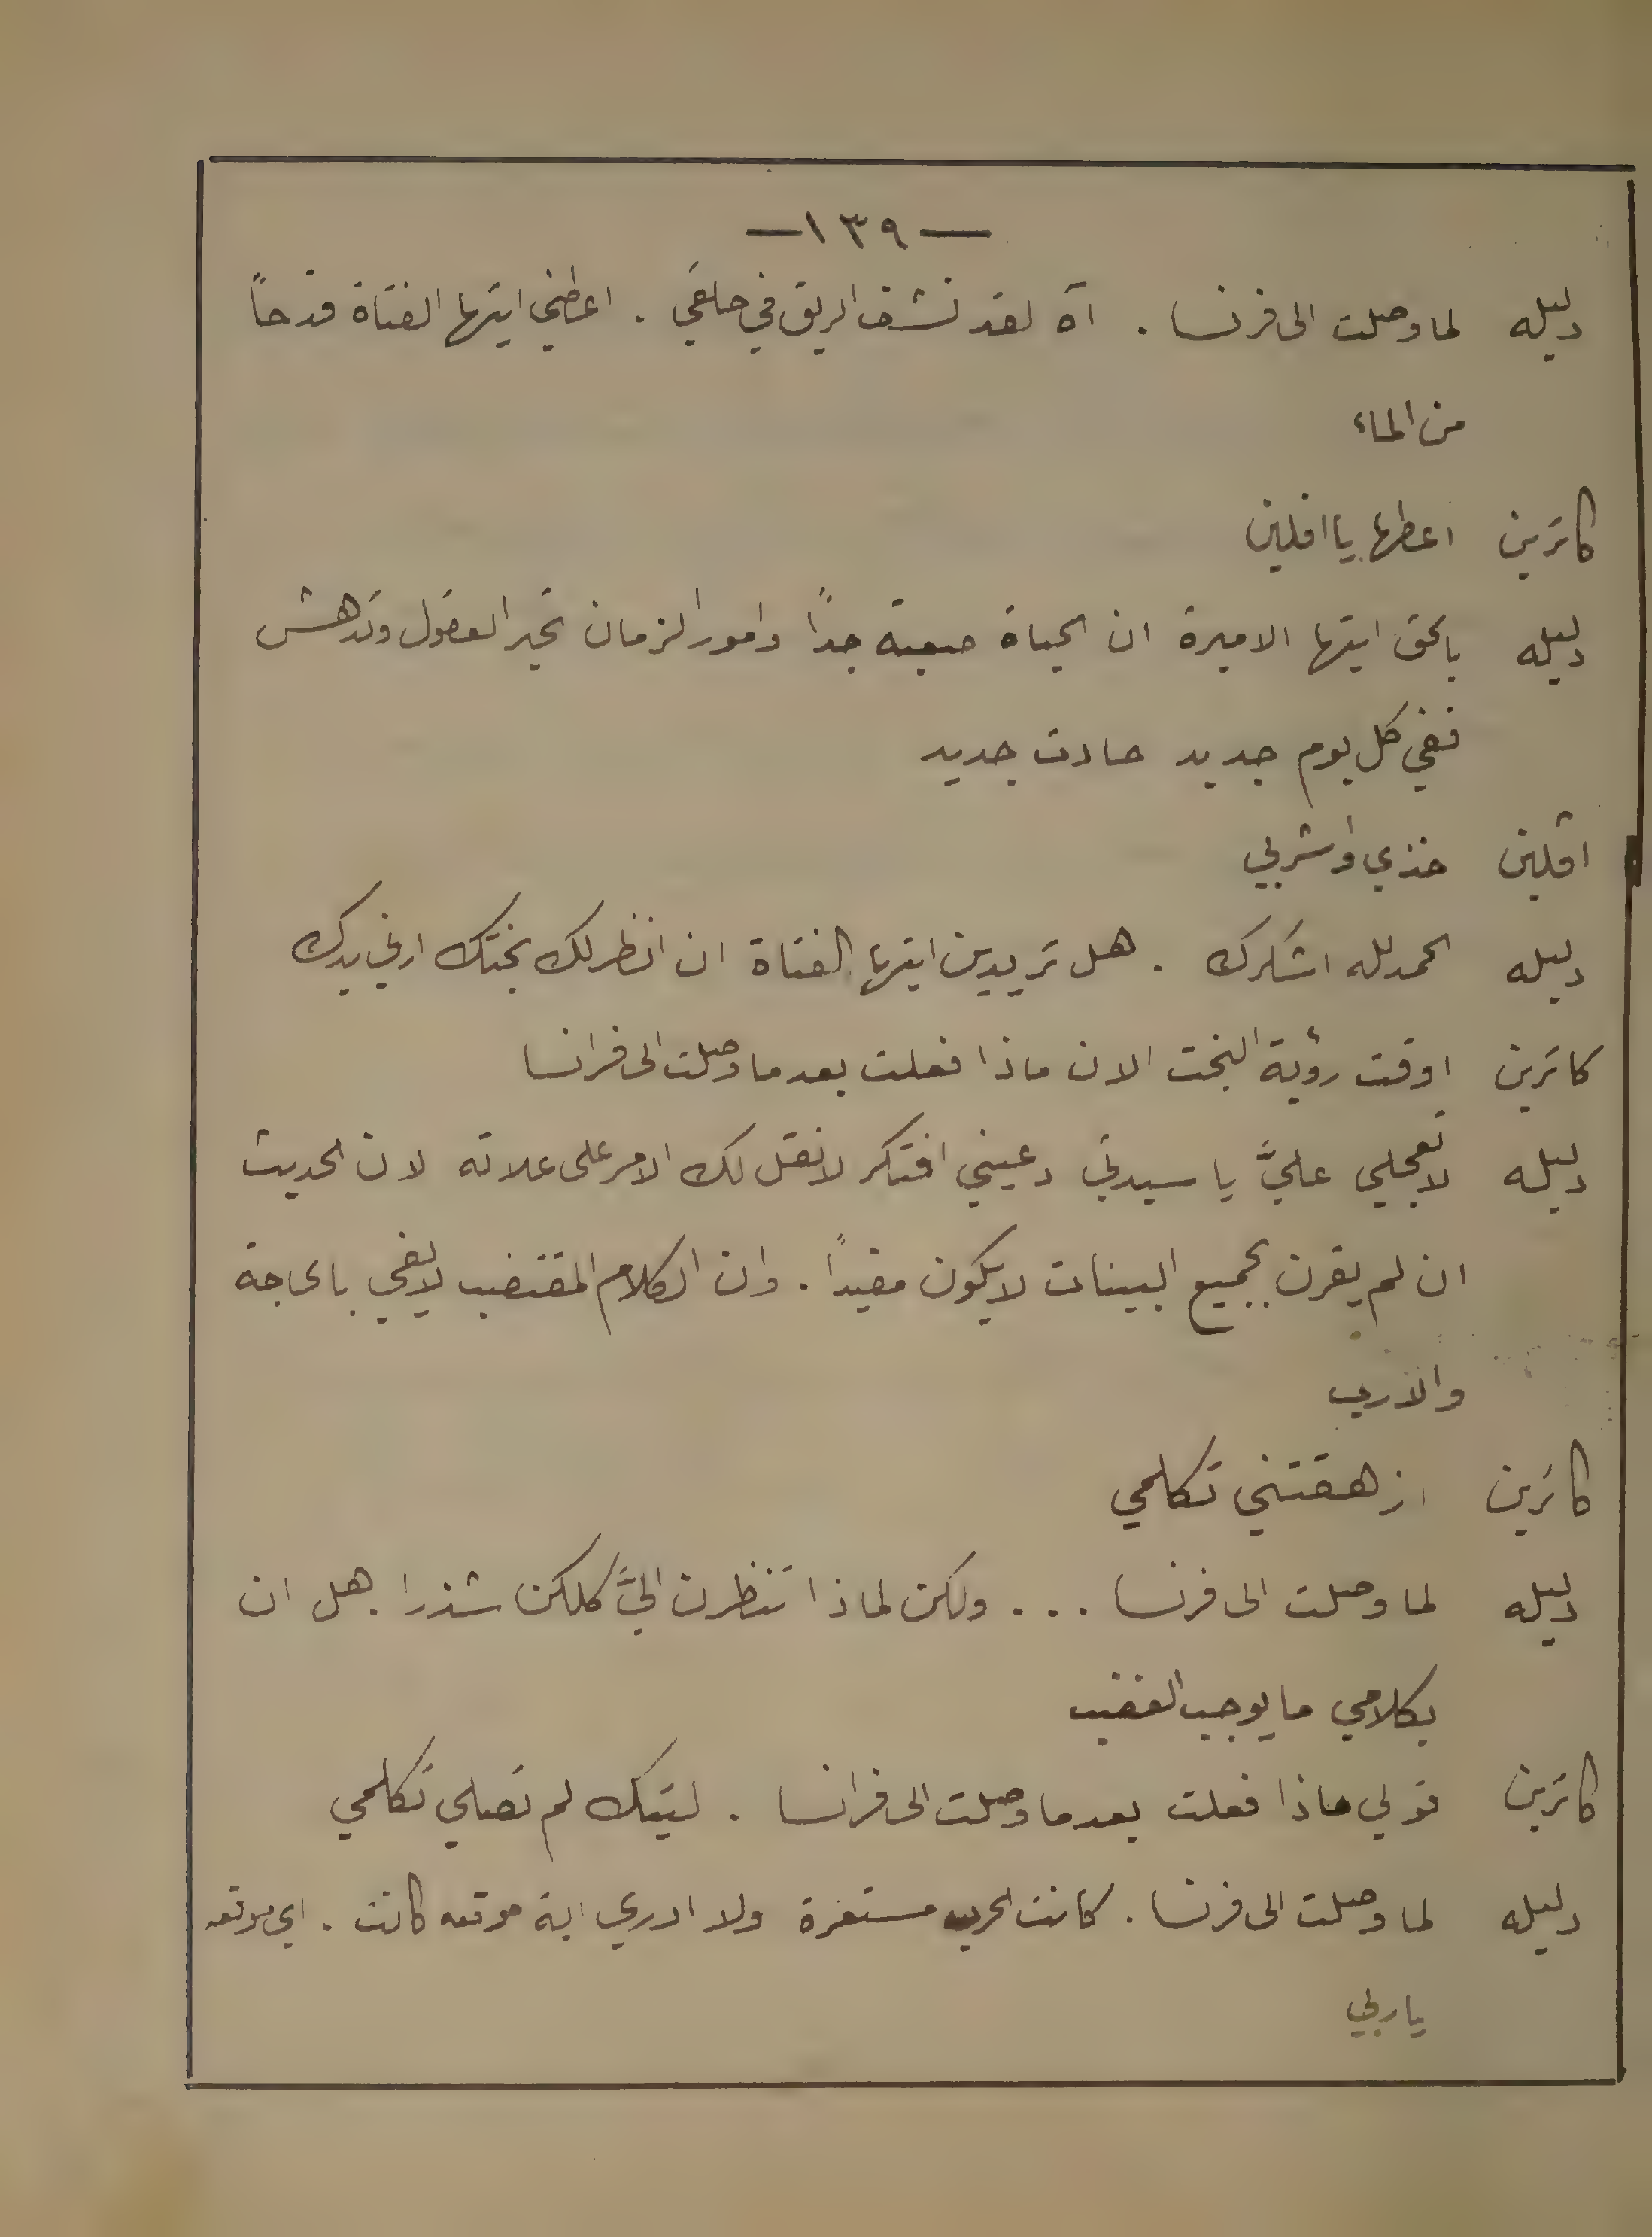 —١٣٩—
دليله لما وصلت الى فرنسا . آه لقد نشف الريق في حلقي . اعطني ايتها الفتاة قدحاً
من الماء
كاترين اعطها يا افلين
دليله بالحق ايتها الاميرة ان الحياة صعبة جداً وامور الزمان تحير العقول وتدهش
ففي كل يوم جديد حادث جديد
افلين خذي واشربي
دليله الحمدلله اشكرك . هل تريدين ايتها الفتاة ان انظر لك بختك ارني يدك
كاترين اوقت رؤية البخت الان ماذا فعلت بعد ما وصلت الى فرانسا
دليله لا تعجلي عليَّ يا سيدتي دعيني افتكر لانقل لك الامر على علاته لان الحديث
ان لم يقرن بجميع البينات لا يكون مفيداً . وان الكلام المقتضب لا يفي بالحاجة
والارب
كاترين ازهقتني تكلمي
دليله لما وصلت الى فرنسا ... ولكن لماذا تنظرن اليَّ كلكن شذرا . هل ان
بكلامي ما يوجب الغضب
كاترين قولي ماذا فعلت بعد ما وصلت الى فرانسا . ليتك لم تصلي تكلمي
دليله لما وصلت الى فرنسا . كانت الحرب مستعرة ولا ادري اية موقعه كانت . اي موقعه
يا ربي